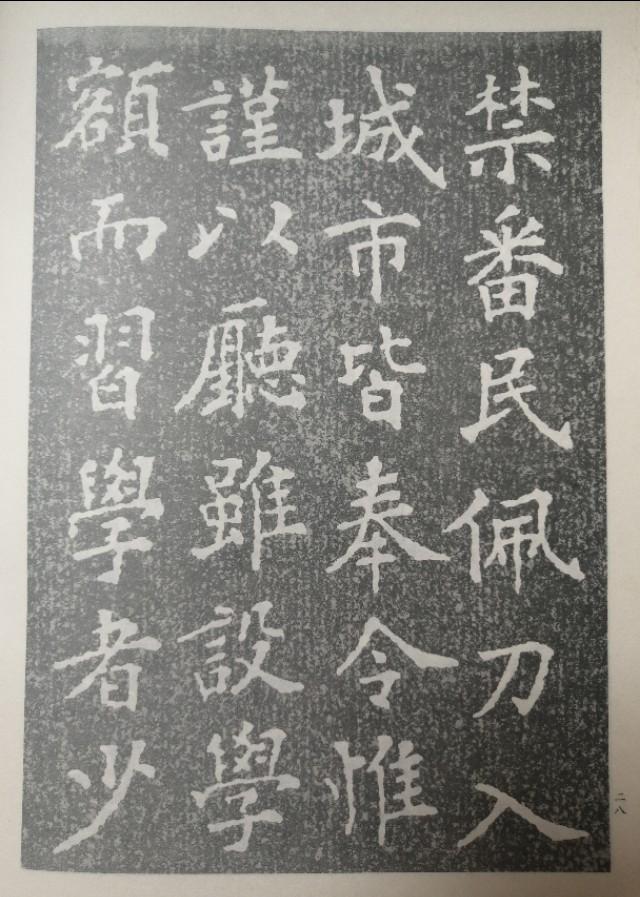 禁番民佩刀入
城市皆奉令惟
謹以廳雖設學
額而習學者少
二八